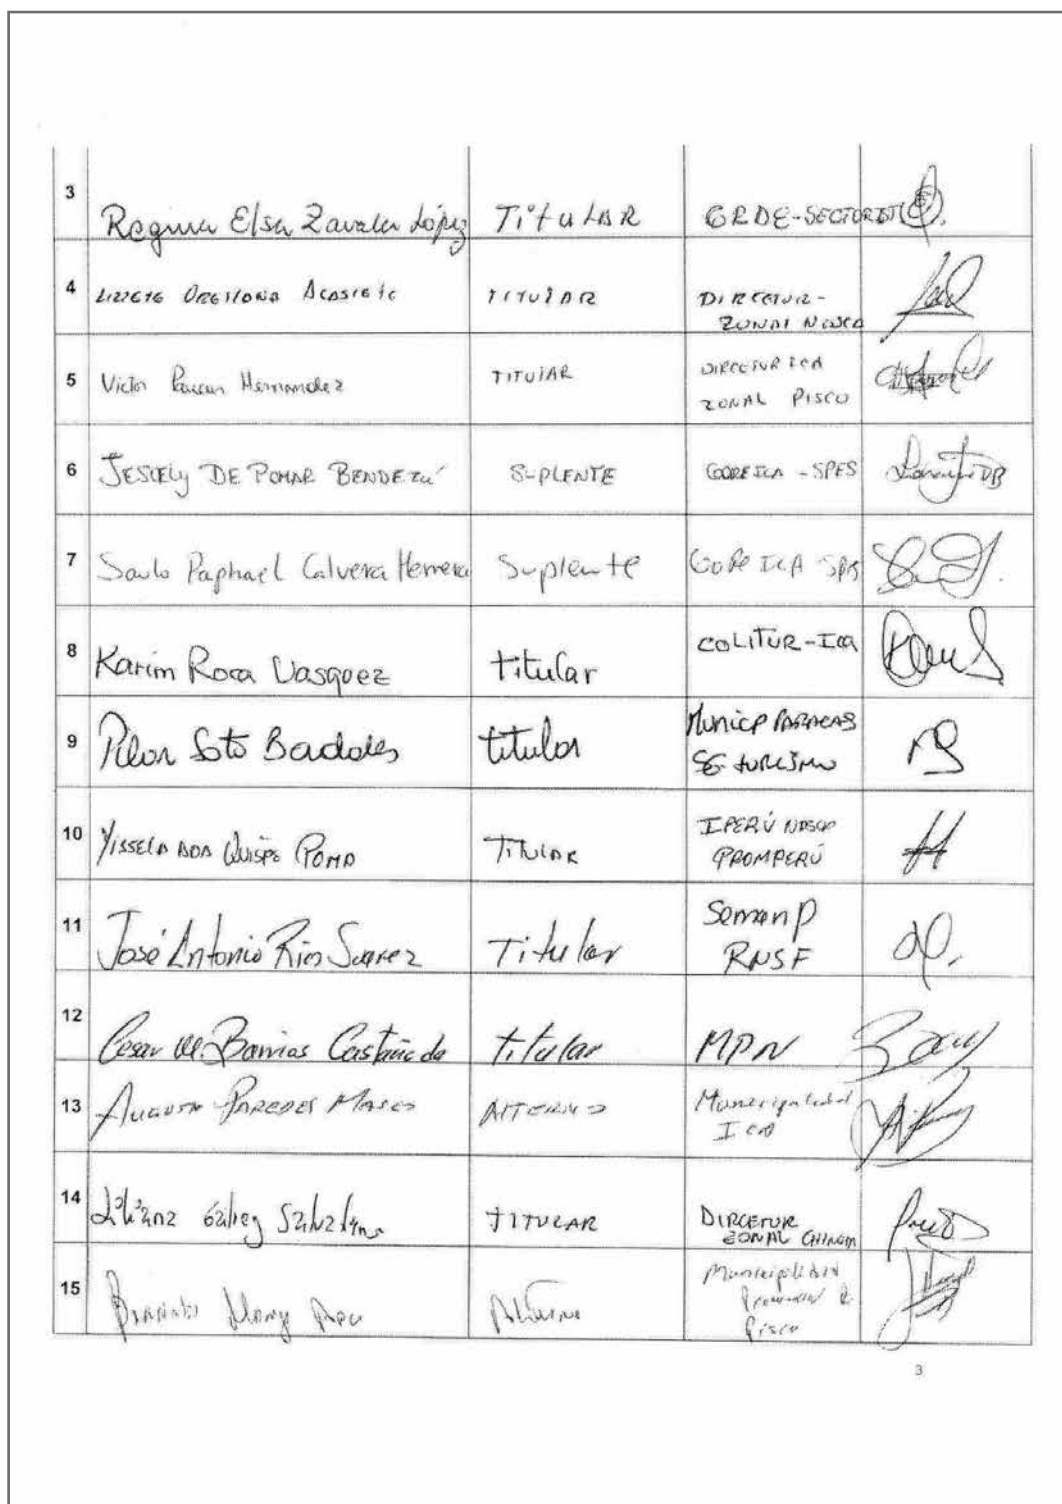 3 Regina Elsa Zavala López Titular GRDE-SECTORIST
4 Orellona TITULAR DIRCETUR-
ZONAL NASCA
5 Victor Hernandez TITULAR DIRCETUR ICA
ZONAL PISCO
6 JESCELY DE POMAR BENDEZÚ SUPLENTE GORE ICA - SPES
7 Saulo Raphael Calvera Herrera Suplente GORE ICA SPES
8 Karim Roca Vasquez titular COLITUR-Ica
9 Pilar Soto titular MUNICP PARACAS
SG TURISMO
10 YISSELA ADA QUISPE POMA TITULAR IPERÚ NASCA
PROMPERÚ
11 José Antonio Rios Suarez Titular Sernanp
RNSF
12 Cesar M. Barrios Castañeda titular MPN
13 AUGUSTO PAREDES ALTERNO Municipalidad
ICA
14 Liliana TITULAR DIRCETUR
ZONAL CHINCHA
15 Alterno Municipalidad
Provincial de
Pisco
3